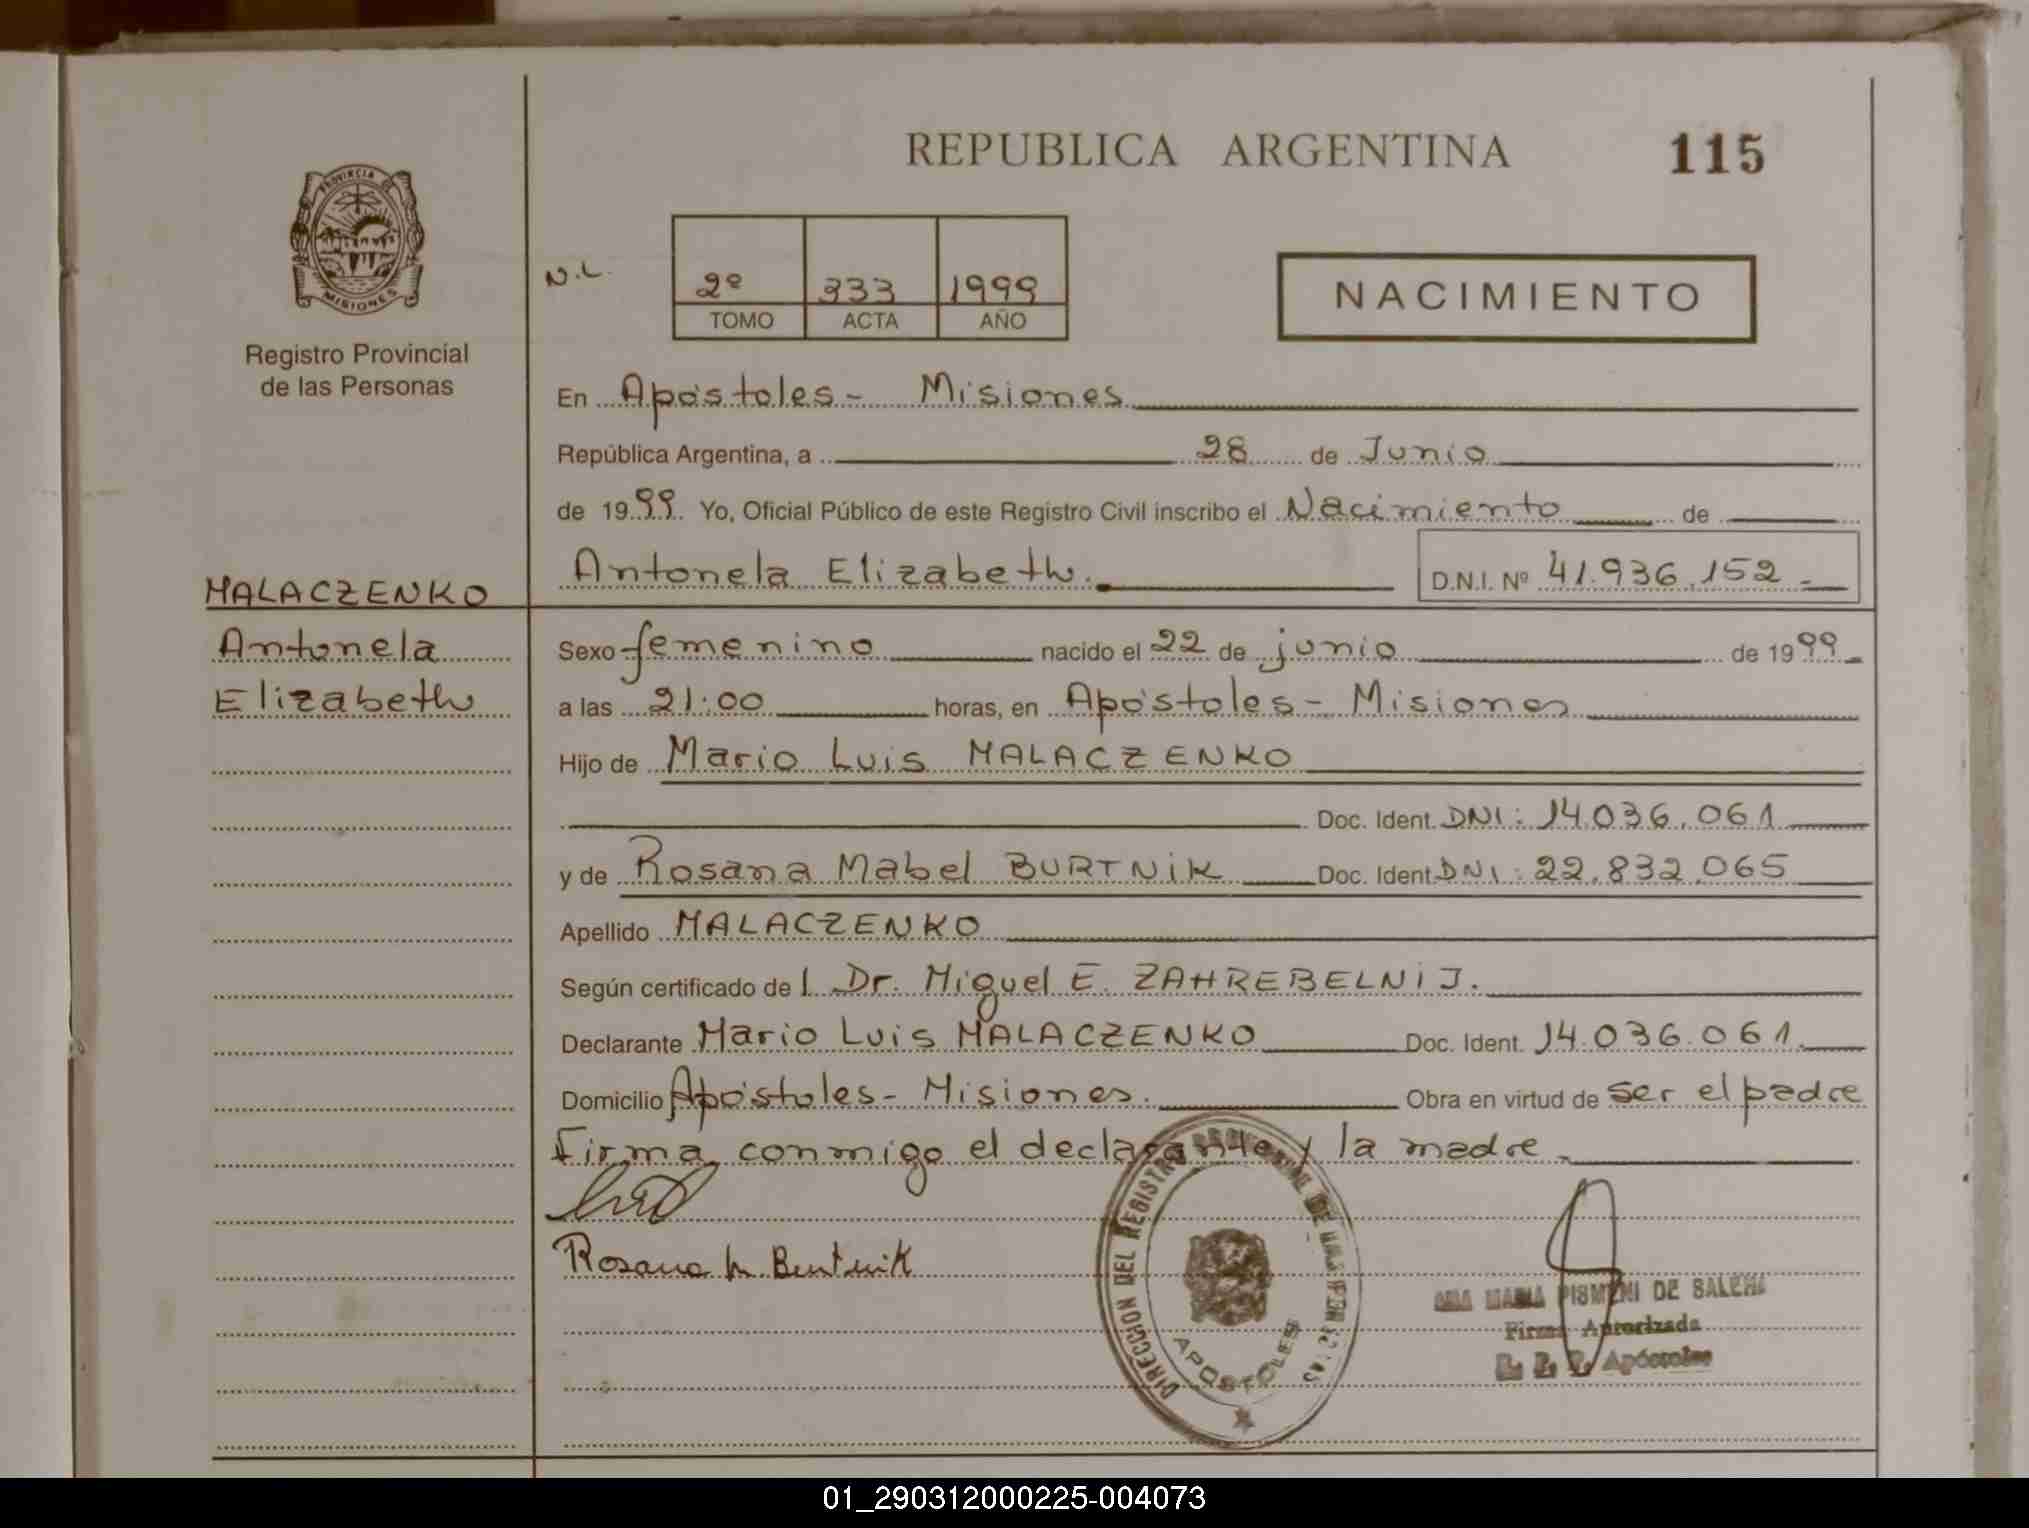 REPUBLICA ARGENTINA 115
PROVINCIA DE
MISIONES
Registro Provincial
de las Personas
N.L.
2º 333 1999
TOMO ACTA AÑO
NACIMIENTO
En Apóstoles - Misiones
República Argentina, a 28 de Junio
de 1999. Yo, Oficial Público de este Registro Civil inscribo el Nacimiento de
Antonela Elizabeth. D.N.I. Nº 41.936.152 -
MALACZENKO
Antonela
Elizabeth
Sexo femenino nacido el 22 de junio de 1999
a las 21:00 horas, en Apóstoles - Misiones
Hijo de Mario Luis MALACZENKO
Doc. Ident. DNI: 14.036.061
y de Rosana Mabel BURTNIK Doc. Ident DNI: 22.832.065
Apellido MALACZENKO
Según certificado de l Dr. Miguel E. ZAHREBELNIJ.
Declarante Mario Luis MALACZENKO Doc. Ident. 14.036.061.
Domicilio Apóstoles - Misiones. Obra en virtud de ser el padre
Firma conmigo el declarante y la madre.
Rosana M Burtnik
DIRECCION DEL REGISTRO PROVINCIAL DE LAS PERSONAS
APOSTOLES
ANA MARIA PISMENI DE SALEMI
Firma Autorizada
Apóstoles
01_290312000225-004073